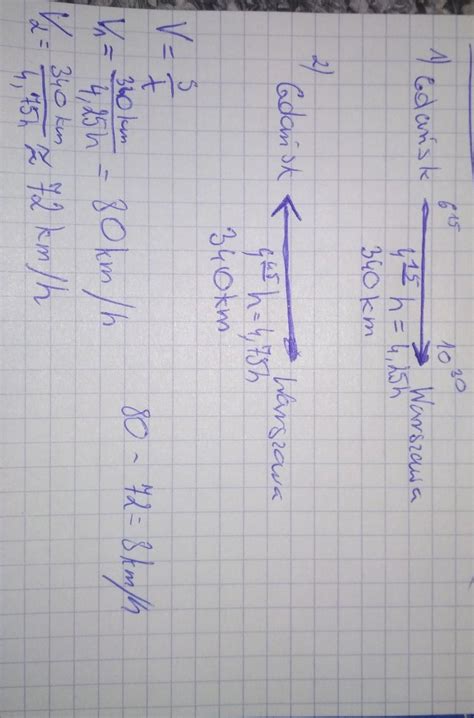 1) Gdańsk 6 15 → 10 30 Warszawa
4 15 h = 4,25h
340 km
2) Gdańsk ← Warszawa
4 45 h = 4,75h
340km
V = s/t
V₁ = 340 km / 4,25h = 80 km/h
80 - 72 = 8 km/h
V₂ = 340 km / 4,75h ≈ 72 km/h